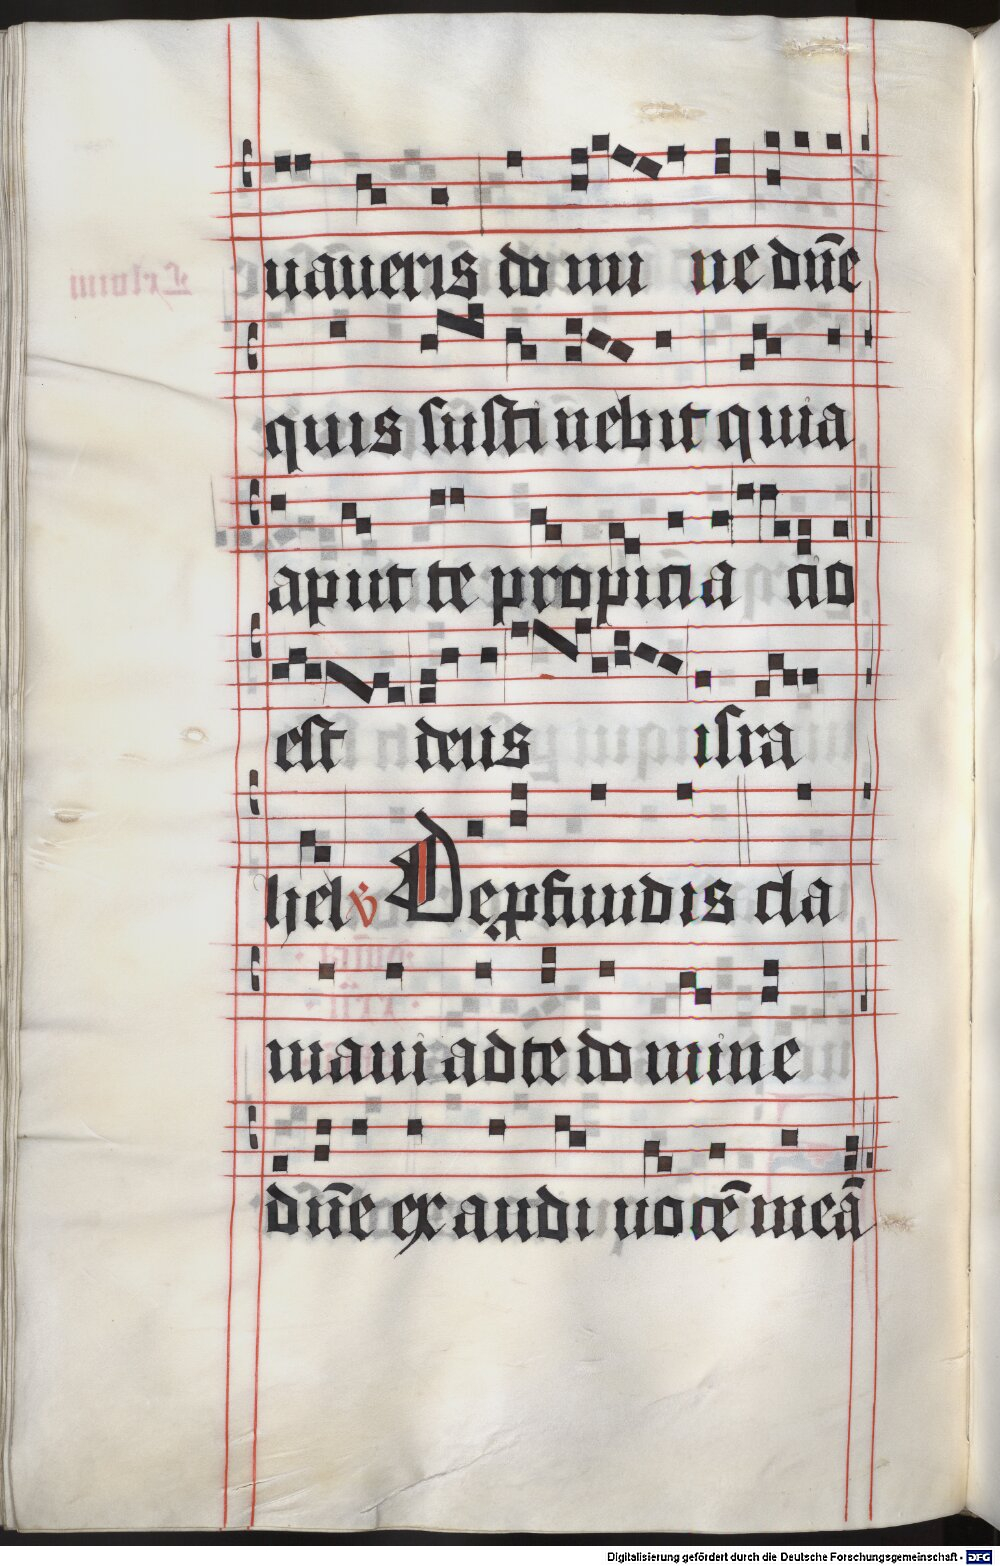 uaueris do mi ne dn̄e
quis susti nebit quia
aput te propicia cio
est deus isra
hel v̇ De ꝓfundis cla
maui ad te do mine
dn̄e ex audi uocē meā
Digitalisierung gefördert durch die Deutsche Forschungsgemeinschaft - DFG